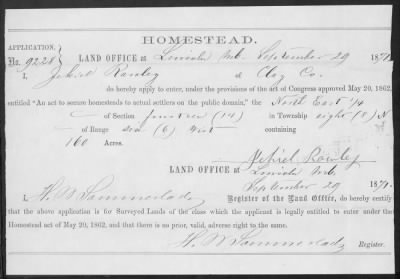 HOMESTEAD.
APPLICATION.
No. 9228
LAND OFFICE at Lincoln Neb. September 29 187
I, Jehiel Rawley of Clay Co.
do hereby apply to enter, under the provisions of the act of Congress approved May 20, 1862,
entitled "An act to secure homesteads to actual settlers on the public domain," the North East 1/4
of Section fourteen (14) in Township eight (8) N
of Range six (6) West containing
160 Acres.
Jehiel Rawley
LAND OFFICE at Lincoln Neb.
September 29 187
I, H. W. Sommerlad, Register of the Land Office, do hereby certify
that the above application is for Surveyed Lands of the class which the applicant is legally entitled to enter under the
Homestead act of May 20, 1862, and that there is no prior, valid, adverse right to the same.
H. W. Sommerlad, Register.